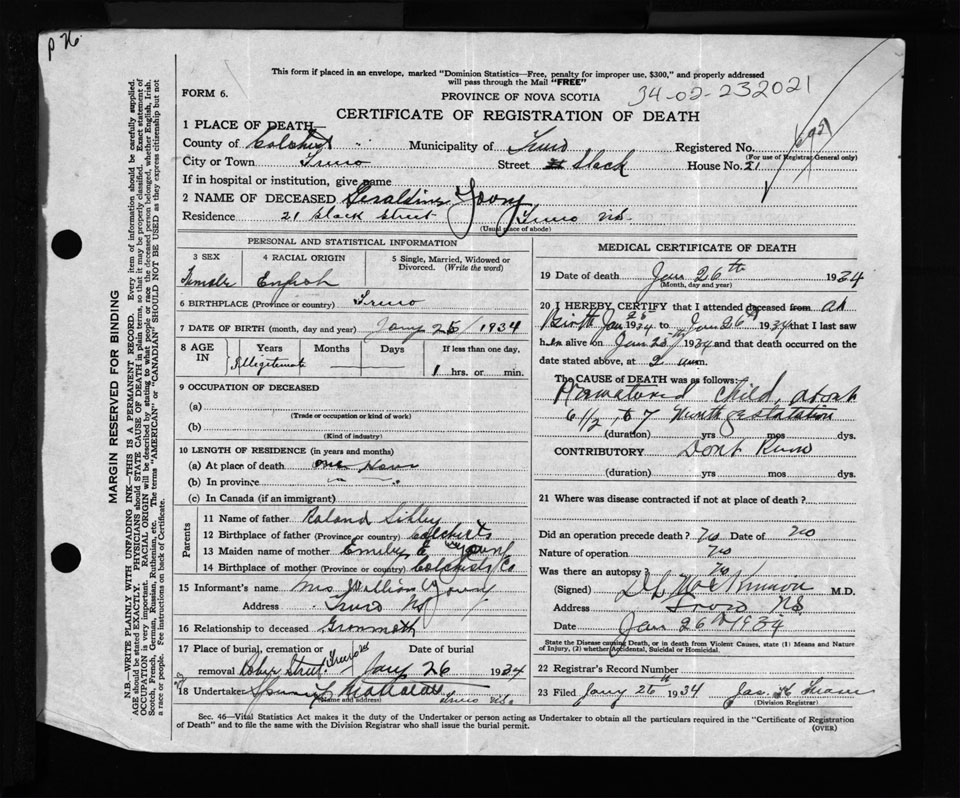 P 76
This form if placed in an envelope, marked "Dominion Statistics—Free, penalty for improper use, $300," and properly addressed
will pass through the Mail "FREE"
FORM 6.
PROVINCE OF NOVA SCOTIA
34-02-232021
CERTIFICATE OF REGISTRATION OF DEATH
1 PLACE OF DEATH—
County of Colchest Municipality of Truro Registered No.
(For use of Registrar General only)
City or Town Truro Street Slack House No. 21
If in hospital or institution, give name
2 NAME OF DECEASED Geraldine Young
Residence 21 Slack Street Truro N.S.
(Usual place of abode)
PERSONAL AND STATISTICAL INFORMATION
3 SEX 4 RACIAL ORIGIN 5 Single, Married, Widowed or
Divorced. (Write the word)
Female English
6 BIRTHPLACE (Province or country) Truro
7 DATE OF BIRTH (month, day and year) Jany 25 / 1934
8 AGE IN Years Months Days If less than one day,
Illegitemate 1 hrs. or min.
9 OCCUPATION OF DECEASED
(a)
(Trade or occupation or kind of work)
(b)
(Kind of industry)
10 LENGTH OF RESIDENCE (in years and months)
(a) At place of death one Hour
(b) In province
(c) In Canada (if an immigrant)
Parents
11 Name of father Roland Sibley
12 Birthplace of father (Province or country) Colchests
13 Maiden name of mother Emily E Young
14 Birthplace of mother (Province or country) Colchests Co
15 Informant's name Mrs William Young
Address Truro NS
16 Relationship to deceased Granmoth
17 Place of burial, cremation or Date of burial
removal Street Truro Jany 26 1934
18 Undertaker
(Name and address) Truro N.S.
MEDICAL CERTIFICATE OF DEATH
19 Date of death Jan 26th 1934
(Month, day and year)
20 I HEREBY CERTIFY that I attended deceased from at
Birth Jan 25 1934 to Jan 26 1934 that I last saw
alive on Jan 1934 and that death occurred on
date stated above, at 2 a.m.
The CAUSE of DEATH was as follows:
Prematured child, about
6 1/2 to 7 Month gestation
(duration) yrs mos dys.
CONTRIBUTORY Dont Know
(duration) yrs mos dys.
21 Where was disease contracted if not at place of death?
Did an operation precede death? No Date of No
Nature of operation No
Was there an autopsy? No
(Signed) M.D.
Address Truro N.S.
Date Jan 26th 1934
State the Disease causing Death, or in death from Violent Causes, state (1) Means and Nature
of Injury, (2) whether Accidental, Suicidal or Homicidal.
22 Registrar's Record Number
23 Filed Jany 26 1934 Jas
(Division Registrar)
Sec. 46—Vital Statistics Act makes it the duty of the Undertaker or person acting as Undertaker to obtain all the particulars required in the "Certificate of Registration
of Death" and to file the same with the Division Registrar who shall issue the burial permit.
(OVER)
MARGIN RESERVED FOR BINDING
N.B.—WRITE PLAINLY WITH UNFADING INK—THIS IS A PERMANENT RECORD. Every item of information should be carefully supplied.
AGE should be stated EXACTLY. PHYSICIANS should STATE CAUSE OF DEATH in plain terms, so that it may be properly classified. Exact statement of
OCCUPATION is very important. RACIAL ORIGIN will be described by stating to what people or race the deceased person belonged, whether English, Irish,
Scotch, French, German, Russian, Ruthenian, etc. The terms "AMERICAN" or "CANADIAN" SHOULD NOT BE USED as they express citizenship but not
a race or people. Fee instructions on back of Certificate.